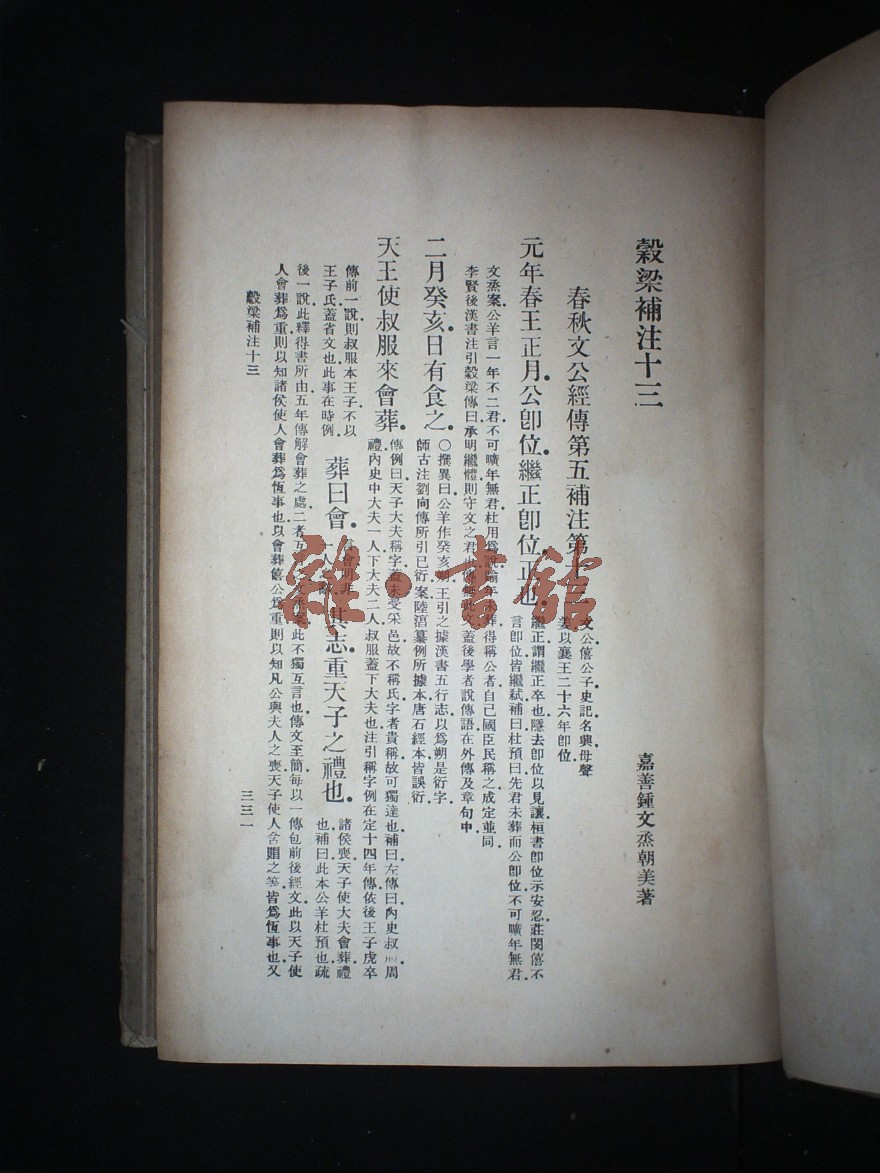 穀梁補注十三
嘉善鍾文烝朝美著
春秋文公經傳第五補注第十三
文公僖公子史記名興母聲
姜以襄王二十六年卽位
元年春王正月公卽位繼正卽位正也
繼正謂繼正卒也隱去卽位以見讓桓書卽位示安忍莊閔僖不
言卽位皆繼弒補曰杜預曰先君未葬而公卽位不可曠年無君
文烝案公羊言一年不二君不可曠年無君杜用爲說踰年未葬得稱公者自己國臣民稱之成定並同
李賢後漢書注引穀梁傳曰承明繼體則守文之君此傳無此文蓋後學者說傳語在外傳及章句中
二月癸亥日有食之
○撰異曰公羊作癸亥朔王引之據漢書五行志以爲朔是衍字
師古注劉向傳所引已衍案陸淳纂例所據本唐石經本皆誤衍
天王使叔服來會葬
傳例曰天子大夫稱字蓋未受采邑故不稱氏字者貴稱故可獨達也補曰左傳曰內史叔服周
禮內史中大夫一人下大夫二人叔服蓋下大夫也注引稱字例在定十四年傳依後王子虎卒
傳前一說則叔服本王子不以
王子氏蓋省文也此事在時例
葬曰會
言會明非
一人之辭
其志重天子之禮也
諸侯喪天子使大夫會葬禮
也補曰此本公羊杜預也疏
後一說此釋得書所由五年傳解會葬之處二者互文烝案此不獨互言也傳文至簡每以一傳包前後經文此以天子使
人會葬爲重則以知諸侯使人會葬爲恆事也以會葬僖公爲重則以知凡公與夫人之喪天子使人含賵之等皆爲恆事也又
穀梁補注十三
三三一
雜·書館